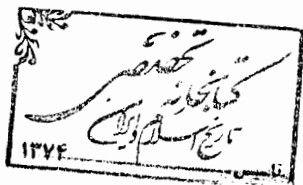 کتابخانه تخصصی
تاریخ اسلام و ایران
۱۳۷۴
تأسیس